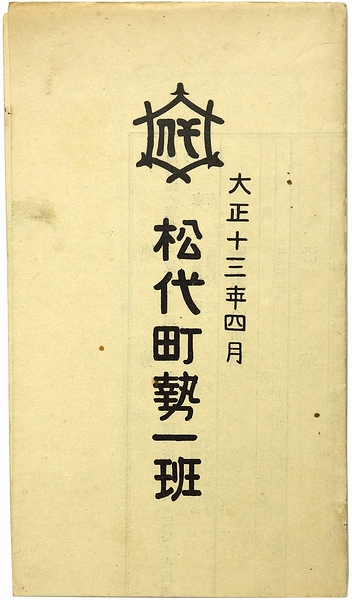 大正十三年四月
松代町勢一班